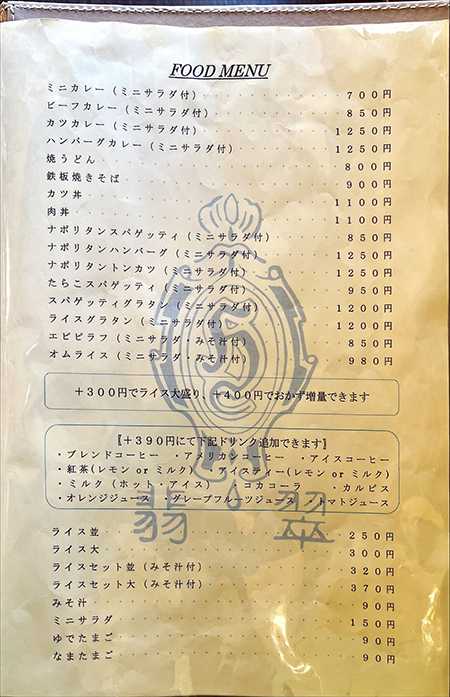 FOOD MENU
ミニカレー（ミニサラダ付）・・・・・・・・・・700円
ビーフカレー（ミニサラダ付）・・・・・・・・・850円
カツカレー（ミニサラダ付）・・・・・・・・・・1250円
ハンバーグカレー（ミニサラダ付）・・・・・・・1250円
焼うどん・・・・・・・・・・・・・・・・・・・800円
鉄板焼きそば・・・・・・・・・・・・・・・・・900円
カツ丼・・・・・・・・・・・・・・・・・・・・1100円
肉丼・・・・・・・・・・・・・・・・・・・・・1100円
ナポリタンスパゲッティ（ミニサラダ付）・・・・850円
ナポリタンハンバーグ（ミニサラダ付）・・・・・1250円
ナポリタントンカツ（ミニサラダ付）・・・・・・1250円
たらこスパゲッティ（ミニサラダ付）・・・・・・950円
スパゲッティグラタン（ミニサラダ付）・・・・・1200円
ライスグラタン（ミニサラダ付）・・・・・・・・1200円
エビピラフ（ミニサラダ・みそ汁付）・・・・・・850円
オムライス（ミニサラダ・みそ汁付）・・・・・・980円
＋300円でライス大盛り、＋400円でおかず増量できます
〚＋390円にて下記ドリンク追加できます〛
・ブレンドコーヒー ・アメリカンコーヒー ・アイスコーヒー
・紅茶(レモン or ミルク) ・アイスティー(レモン or ミルク)
・ミルク（ホット・アイス） ・コカコーラ ・カルピス
・オレンジジュース ・グレープフルーツジュース ・トマトジュース
翡翠
ライス並・・・・・・・・・・・・・・・・・・・250円
ライス大・・・・・・・・・・・・・・・・・・・300円
ライスセット並（みそ汁付）・・・・・・・・・・320円
ライスセット大（みそ汁付）・・・・・・・・・・370円
みそ汁・・・・・・・・・・・・・・・・・・・・90円
ミニサラダ・・・・・・・・・・・・・・・・・・150円
ゆでたまご・・・・・・・・・・・・・・・・・・90円
なまたまご・・・・・・・・・・・・・・・・・・90円